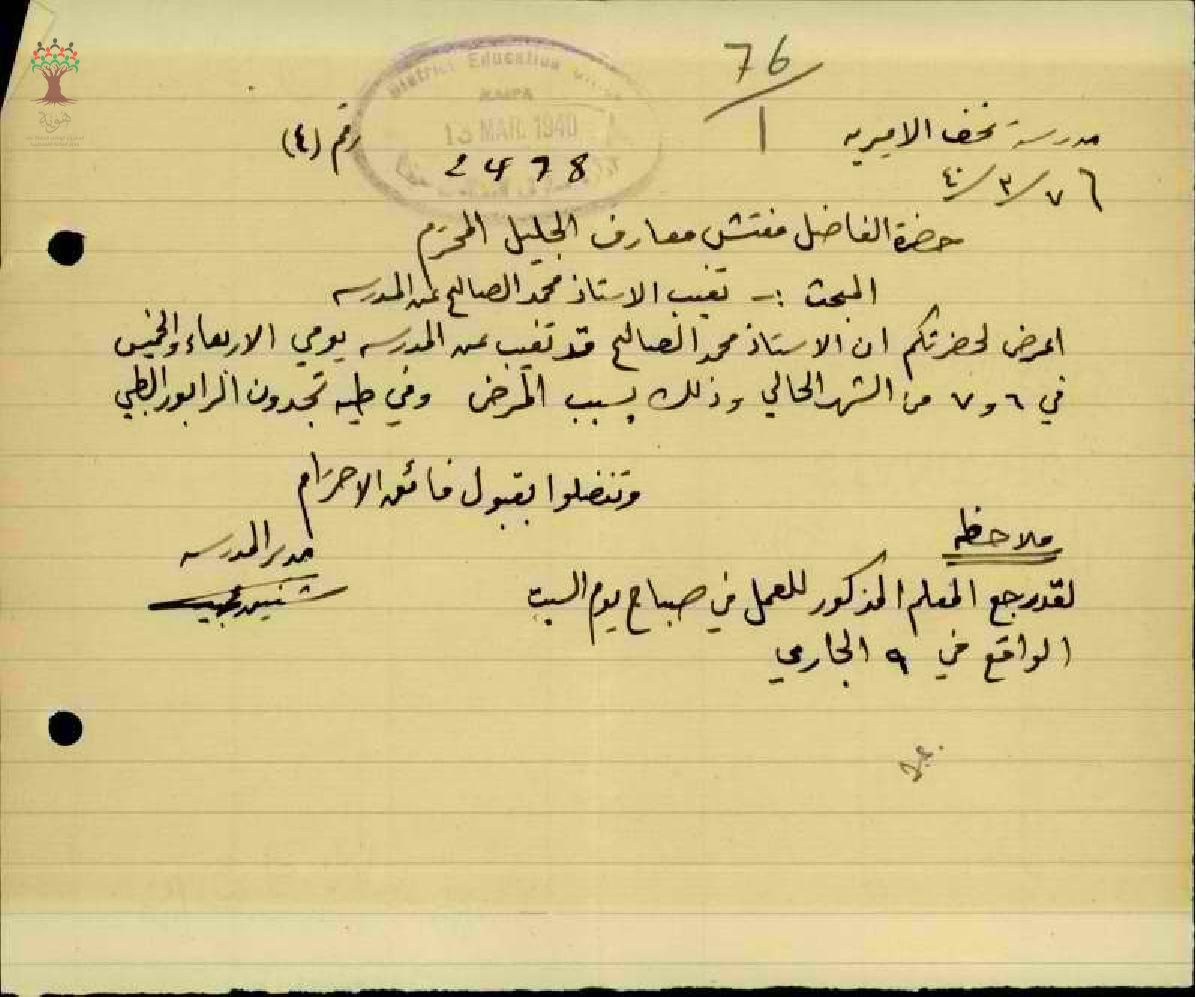 76/1
District Education
HAIFA
13 MAR. 1940
2478
رقم (٤)
مدرسة نحف الاميريه
٤٠/٣/٧
حضرة الفاضل مفتش معارف الجليل المحترم
المبحث :- تغيب الاستاذ محمد الصالح عن المدرسه
اعرض لحضرتكم ان الاستاذ محمد الصالح قد تغيب عن المدرسه يومي الاربعاء والخميس
في ٦ و ٧ من الشهر الحالي وذلك بسبب المرض وفي طيه تجدون الرابور الطبي
وتفضلوا بقبول فائق الاحترام
مدير المدرسه
ملاحظه
لقد رجع المعلم المذكور للعمل في صباح يوم السبت
الواقع في ٩ الجاري
هوية